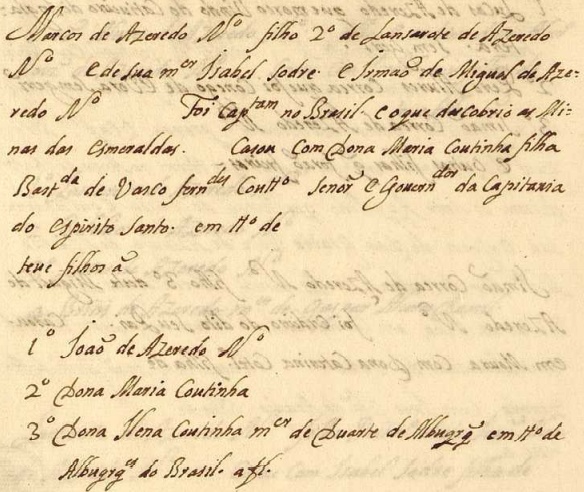 Marcos de Azeredo Nº filho 2º de Lansarote de Azeredo
Nº e de sua mᵉʳ Isabel sodre. e Irmaõ de Miguel de Aze-
redo Nº Foi Capᵗᵃᵐ no Brasil. e o que descobrio as Mi-
nas das esmeraldas. Casou Com Dona Maria Coutinha filha
Bastᵈᵃ de Vasco fernᵈᵉˢ Couttº senõr e Governᵈᵒʳ da Capitania
do espirito santo. em ttº de
teue filhos a
1º Joaõ de Azeredo Nº
2º Dona Maria Coutinha
3º Dona Ilena Coutinha mᵉʳ de Duarte de Albuqrq̃ em ttº de
Albuqrqᵉˢ do Brasil. a fl.